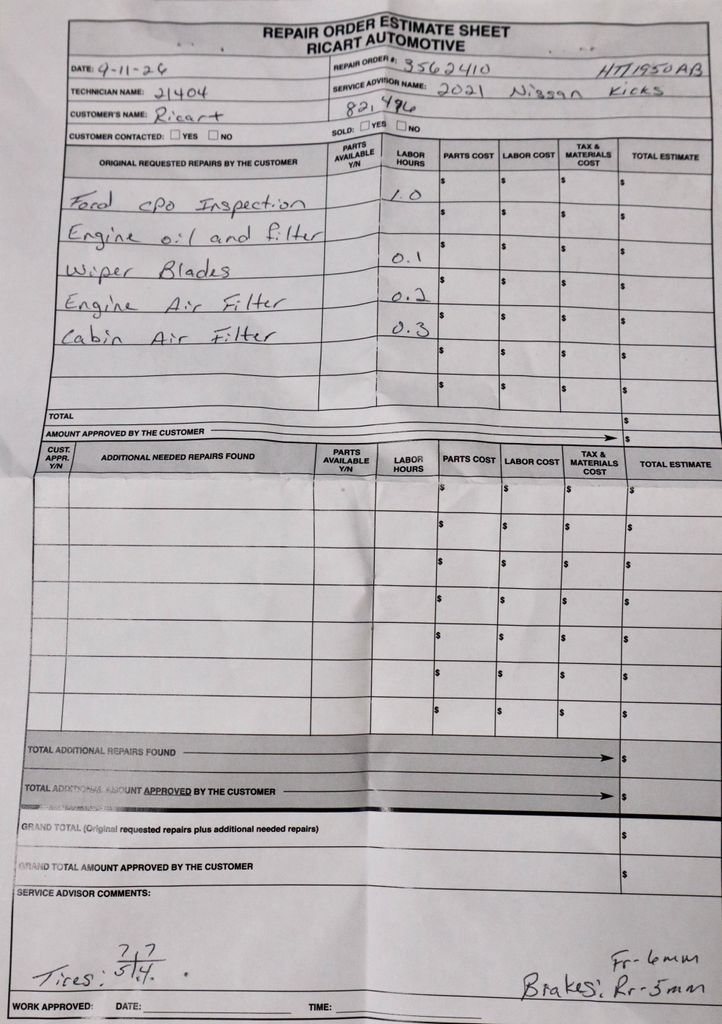 REPAIR ORDER ESTIMATE SHEET
RICART AUTOMOTIVE
DATE: 9-11-26 REPAIR ORDER #: 3562410 HT1950AB
TECHNICIAN NAME: 21404 SERVICE ADVISOR NAME: 2021 Nissan Kicks
CUSTOMER'S NAME: Ricart 82,496
CUSTOMER CONTACTED: ☐ YES ☐ NO SOLD: ☐ YES ☐ NO
ORIGINAL REQUESTED REPAIRS BY THE CUSTOMER PARTS AVAILABLE Y/N LABOR HOURS PARTS COST LABOR COST TAX & MATERIALS COST TOTAL ESTIMATE
$ $ $ $
Ford CPO Inspection 1.0 $ $ $ $
Engine oil and filter $ $ $ $
Wiper Blades 0.1 $ $ $ $
Engine Air Filter 0.2 $ $ $ $
Cabin Air Filter 0.3 $ $ $ $
$ $ $ $
TOTAL $
AMOUNT APPROVED BY THE CUSTOMER $
CUST. APPR. Y/N ADDITIONAL NEEDED REPAIRS FOUND PARTS AVAILABLE Y/N LABOR HOURS PARTS COST LABOR COST TAX & MATERIALS COST TOTAL ESTIMATE
$ $ $ $
$ $ $ $
$ $ $ $
$ $ $ $
$ $ $ $
$ $ $ $
$ $ $ $
TOTAL ADDITIONAL REPAIRS FOUND $
TOTAL ADDITIONAL AMOUNT APPROVED BY THE CUSTOMER $
GRAND TOTAL (Original requested repairs plus additional needed repairs) $
GRAND TOTAL AMOUNT APPROVED BY THE CUSTOMER $
SERVICE ADVISOR COMMENTS:
7 7 Fr- 6mm
Tires: 5 4 Brakes: Rr- 5mm
WORK APPROVED: DATE: TIME: